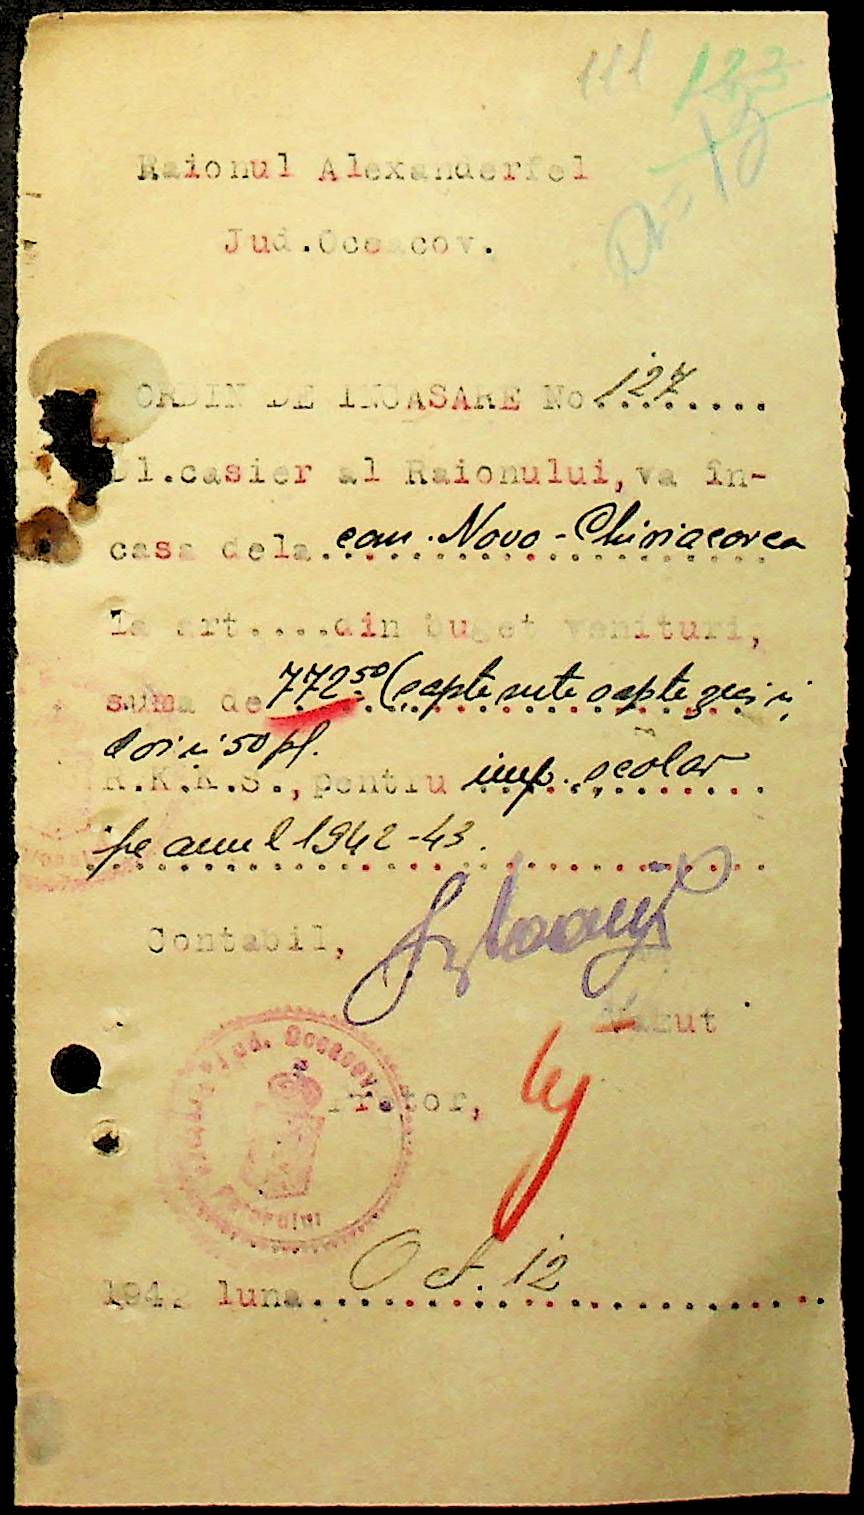 111 123
a=13
Raionul Alexanderfel
Jud.Oceacov.
ORDIN DE INCASARE No.127.......
Dl.casier al Raionului,va în-
casa dela.com. Novo-Chiriacovca
la art.....din buget venituri,
suma de 772⁵⁰ (sapte sute sapte zeci si
doi si 50 pf.
R.K.K.S.,pentru imp. scolar
pe anul 1942-43.
Contabil,
Pretor,
Jud. Oceacov
194. luna Oct. 12